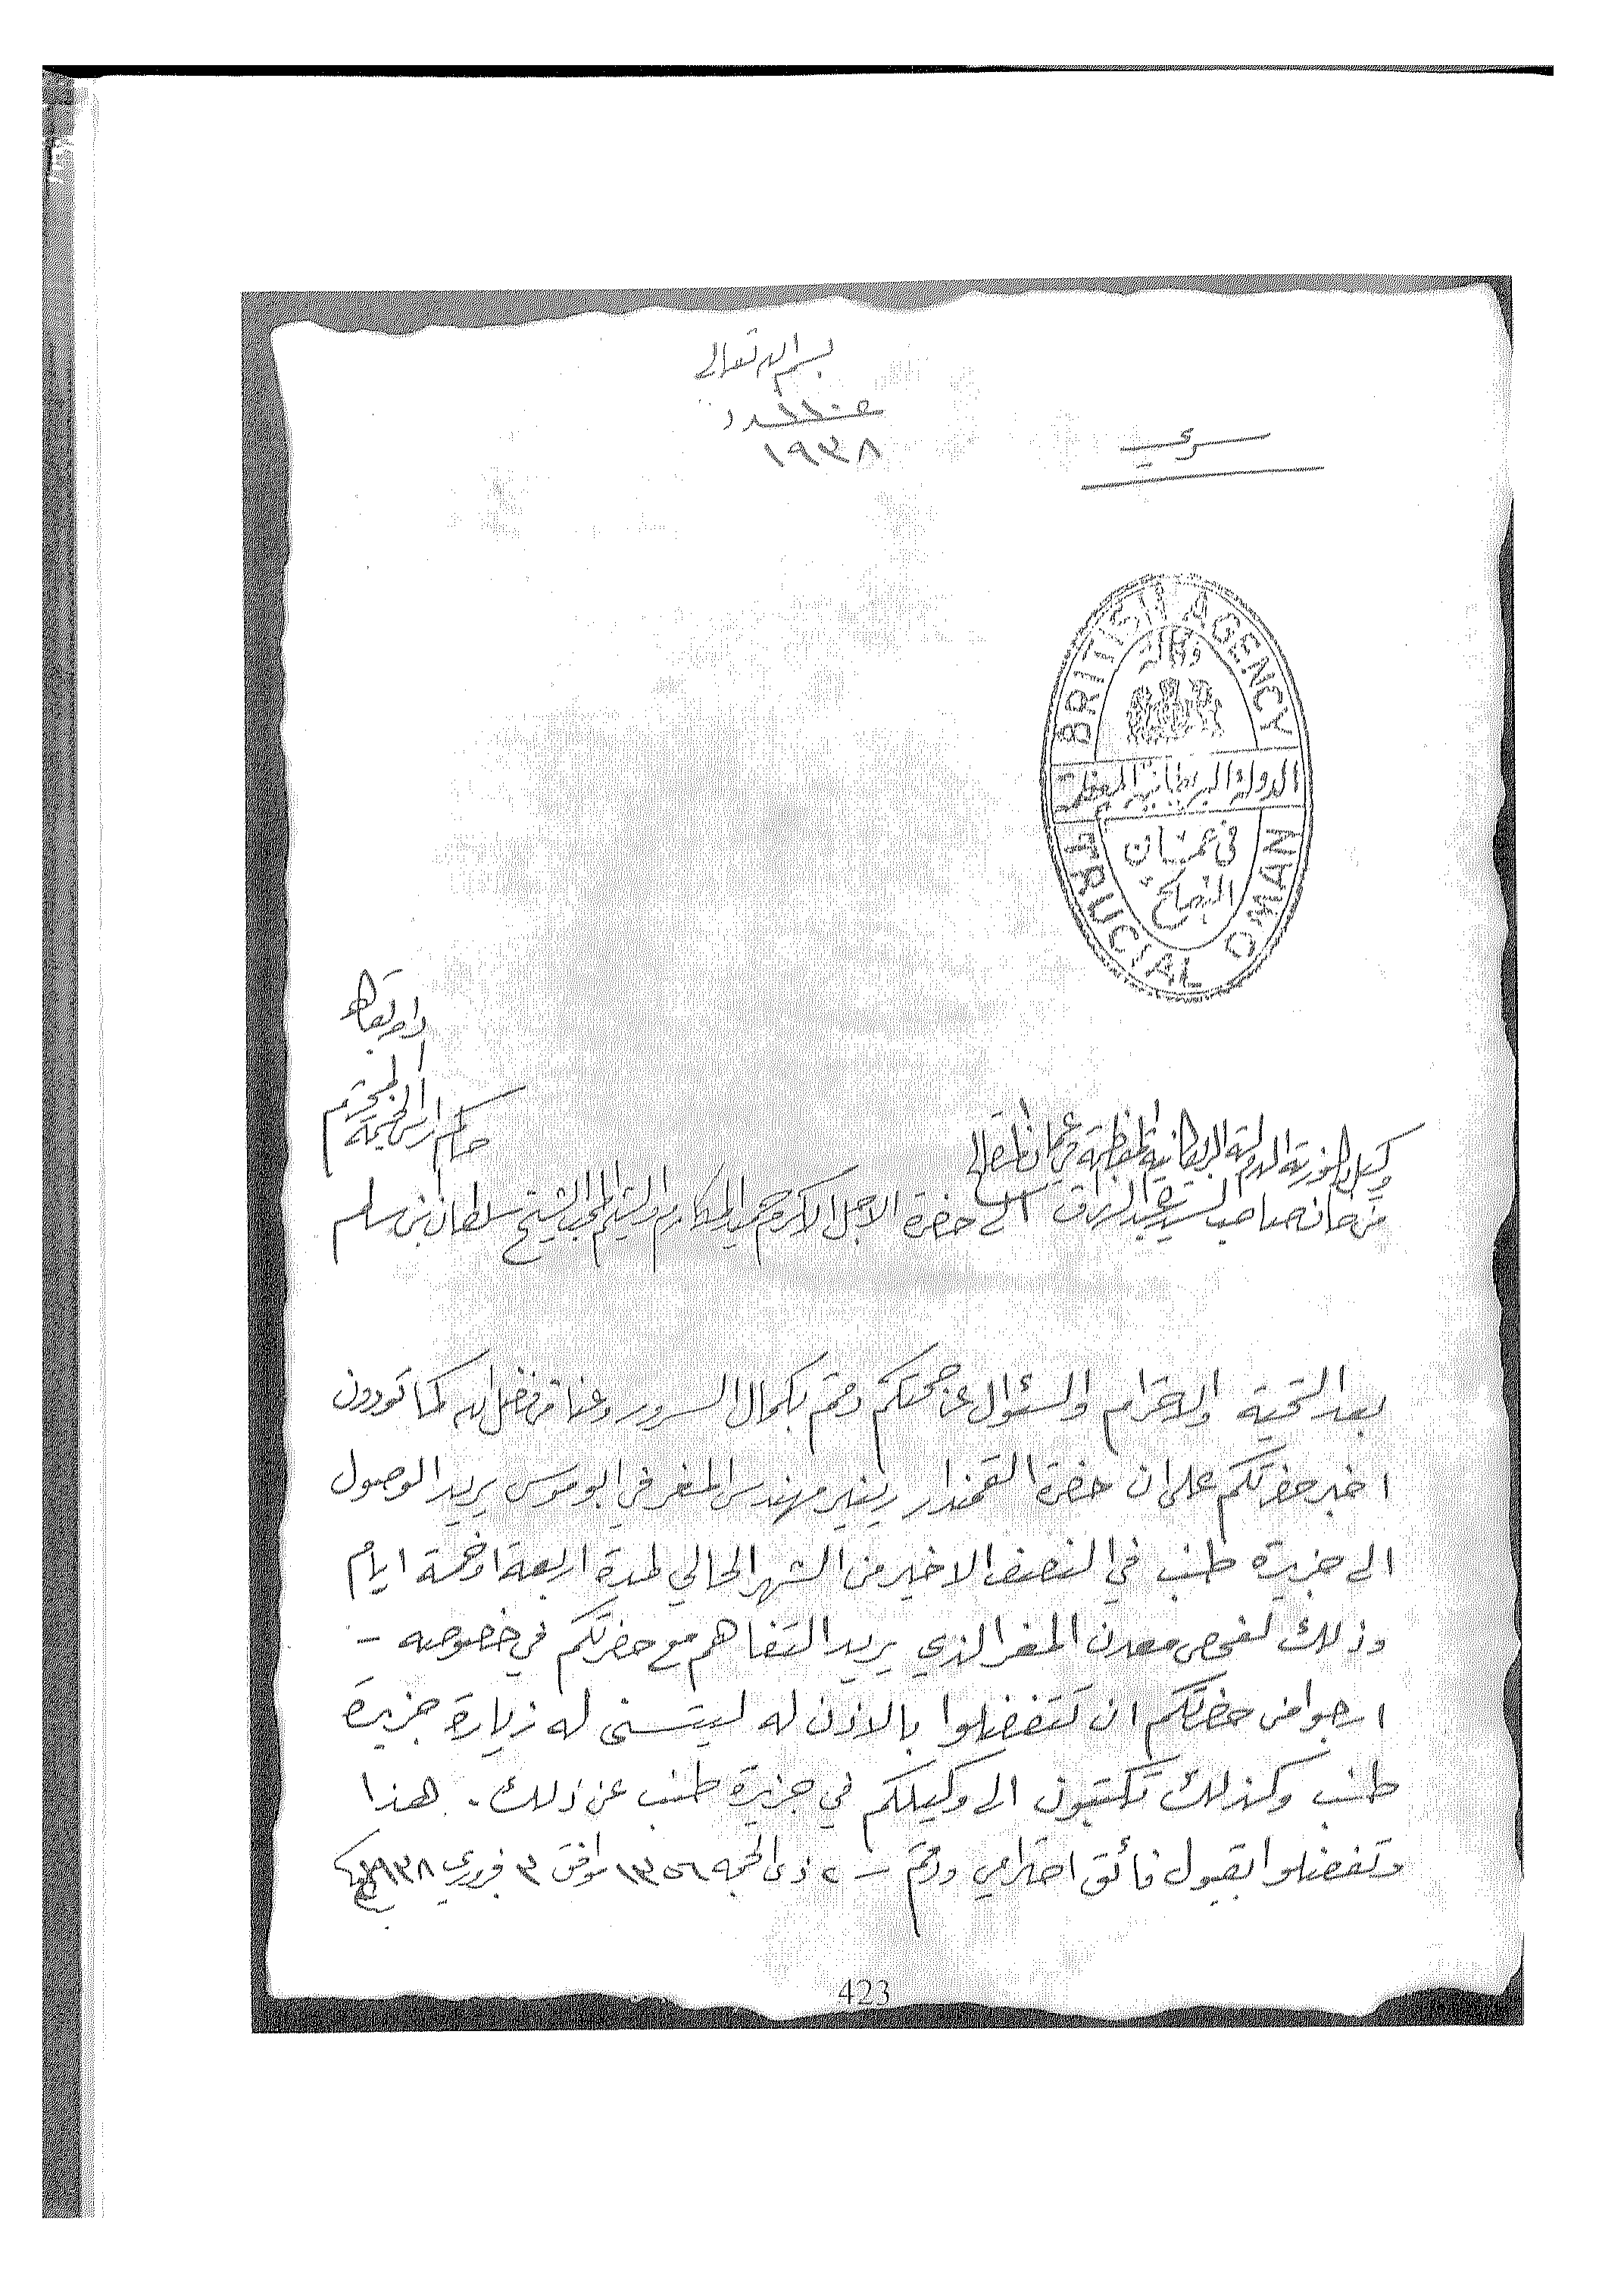 بسم الله تعالى
١٩٣٨
سري
BRITISH AGENCY
وكالة
الدولة البريطانية المعظمة
في عمان
المتصالح
TRUCIAL OMAN
دام بقاه
المحترم
حاكم راس الخيمة
وكيل فخيمة الدولة البريطانية المعظمة في عمان المتصالح
من خانصاحب السيد عبد الرزاق الى حضرة الاجل الاكرم حميد المكارم والشيم المحب الشيخ سلطان بن سالم
بعد التحية والاحترام والسئوال عن صحتكم دمتم بكمال السرور وعنا من فضل الله كما تودون
اخبر حضرتكم على ان حضرة القمندار مهندس المغر في ابو موسى يريد الوصول
الى جزيرة طنب في النصف الاخير من الشهر الحالي لمدة اربعة او خمسة ايام
وذلك لفحص معدن المغر الذي يريد التفاهم مع حضرتكم في خصوصه –
ارجوا من حضرتكم ان تتفضلوا بالاذن له ليتسنى له زيارة جزيرة
طنب وكذلك تكتبون الى وكيلكم في جزيرة طنب عن ذلك . هذا
وتفضلوا بقبول فائق احترامي ودمتم – ٢ ذى الحجه ١٣٥٦ موافق ٣ فبروري ١٩٣٨
423